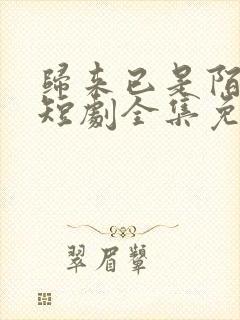 歸来已是陌
短劇全集免
翠眉顰